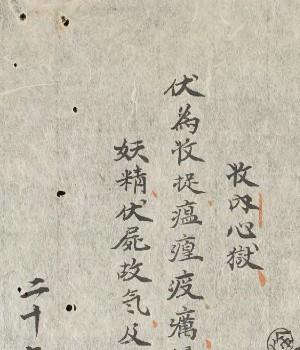 收心獄
伏為收捉瘟㾮疫癘
妖精伏屍故気及
二十